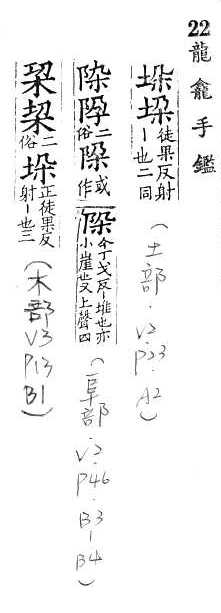 22 龍龕手鑑
垛垜徒果反射丨也二同
(土部.V2.P23.A2)
二俗
或作
今丁戈反丨堆也亦小崖也又上聲四
(阜部.V2.P46.B3-B4)
二俗垛正徒果反射丨也三
(木部V3P13B1)